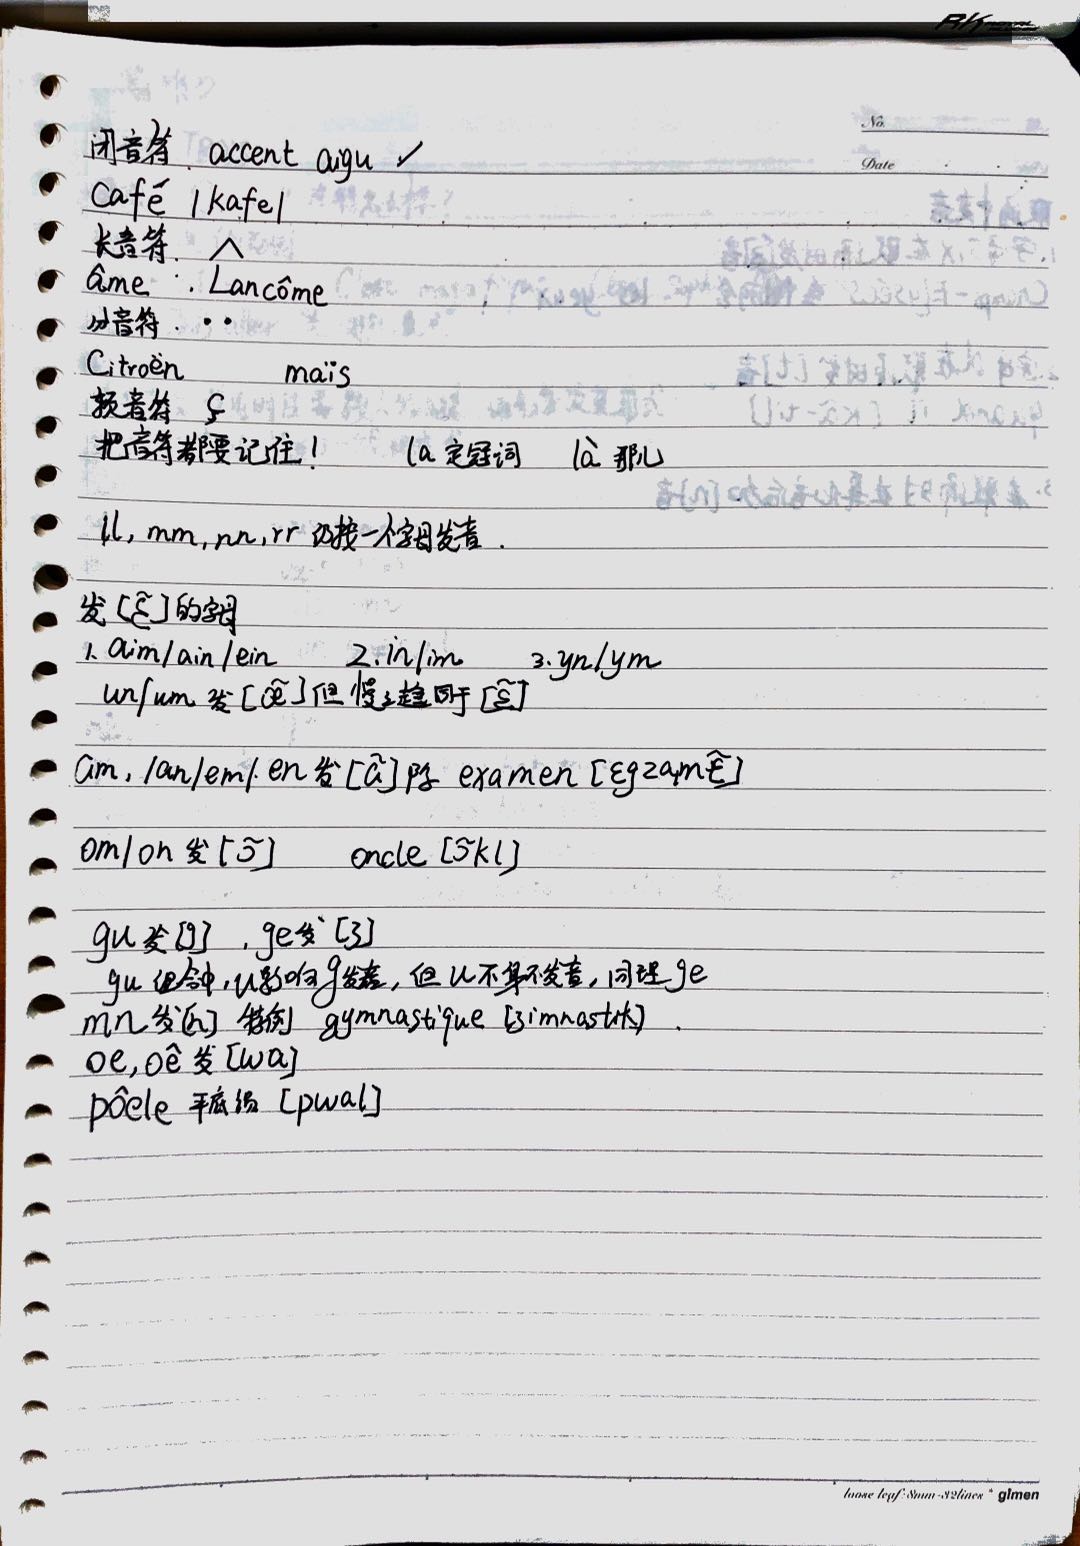 No.
Date
闭音符. accent aigu ✓
Café /kafe/
长音符. ^
âme . Lancôme
分音符. ··
Citroën maïs
软音符 ç
把音符都要记住! la 定冠词 là 那儿
ll, mm, nn, rr 仍按一个字母发音.
发[ɛ̃]的字母
1. aim/ain/ein 2. in/im 3. yn/ym
un/um 发[œ̃]但慢慢趋同于[ɛ̃]
am, /an/em/. en 发[ɑ̃]除 examen [ɛgzamɛ̃]
om/on 发[ɔ̃] oncle [ɔ̃kl]
gu 发[g], ge发[ʒ]
gu 组合中, u影响g发音, 但u不算不发音, 同理ge
mn发[n] 特例 gymnastique [ʒimnastik].
oe, oê 发[wa]
pôele 平底锅 [pwal]
loose leaf·8mm·32lines * glmen